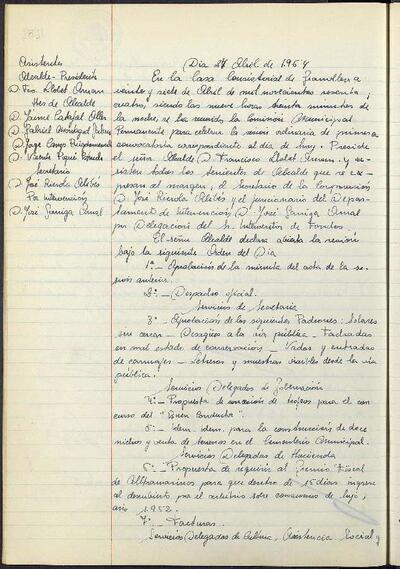 Día 27 Abril de 1964
Asistentes
Alcalde-Presidente
D. Fco. Llobet Arnan
Ttes de Alcalde
D. Jaime
D. Gabriel
D. Jorge Camps
D. Vicente Piqué
Secretario
D. José Rierola Alibés
Por Intervención
D. José Garriga Amal
En la Casa Consistorial de Granollers a
veinte y siete de Abril de mil novecientos sesenta y
cuatro, siendo las nueve horas treinta minutos de
la noche, se ha reunido la Comisión Municipal
Permanente para celebrar la sesión ordinaria de primera
convocatoria correspondiente al día de hoy.- Preside
el señor Alcalde D. Francisco Llobet Arnan, y a-
sisten todos los tenientes de Alcalde que se ex-
presan al margen, el Secretario de la Corporación
D. José Rierola Alibés y el funcionario del Depar-
tamento de Intervención D. José Garriga Amal
por Delegación del Sr. Interventor de Fondos.
El señor Alcalde declara abierta la reunión
bajo la siguiente Orden del Día
1º.- Aprobación de la minuta del acta de la se-
sión anterior.
2º.- Despacho oficial.
Servicios de Secretaría
3º.- Aprobación de los siguientes Padrones: Solares
sin cercar.- Desagües a la vía pública.- Fachadas
en mal estado de conservación.- Vados y entradas
de carruajes.- Letreros y muestras visibles desde la vía
pública.
Servicios Delegados de Gobernación
4º.- Propuesta de concesión de trofeos para el con
curso del "Buen Conductor".
5º.- Idem. idem. para la construcción de doce
nichos y venta de terrenos en el Cementerio Municipal.
Servicios Delegados de Hacienda
6º.- Propuesta de requerir al Gremio Fiscal
de Ultramarinos para que dentro de 15 días ingrese
el descubierto por el arbitrio sobre consumos de lujo,
año 1.953.
7º.- Facturas.
Servicios Delegados de Cultura, Asistencia Social y